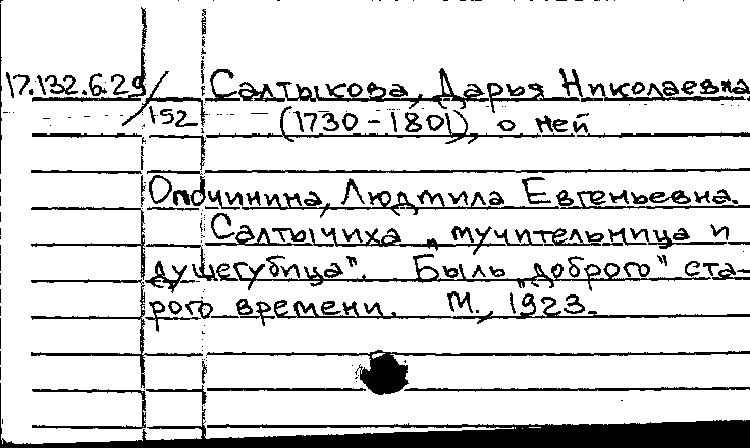 17.132.6.29/152
Салтыкова, Дарья Николаевна
(1730-1801), о ней
Опочинина, Людмила Евгеньевна.
Салтычиха „мучительница и
душегубица". Быль „доброго" ста-
рого времени. М., 1923.